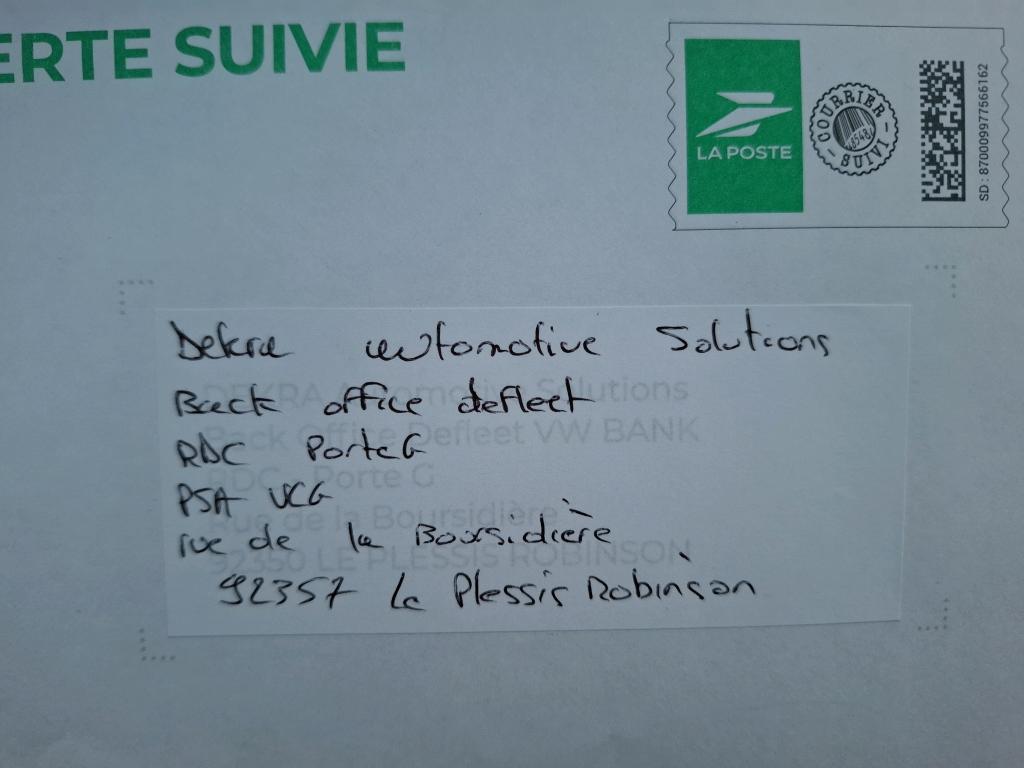 ERTE SUIVIE
LA POSTE
COURRIER SUIVI
SD : 870009977566162
Dekra automotive Solutions
Back office defleet
RDC Porte G
PSA VCG
rue de la Boursidière
92357 Le Plessis Robinson
DEKRA Automotive Solutions
Back Office Defleet VW BANK
RDC - Porte G
Rue de la Boursidière
92350 LE PLESSIS ROBINSON